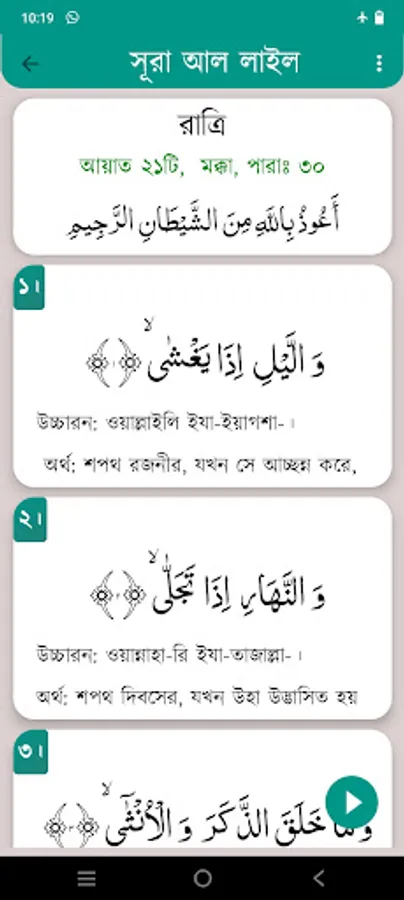 10:19
সূরা আল লাইল
রাত্রি
আয়াত ২১টি, মক্কা, পারাঃ ৩০
أَعُوذُ بِاللَّهِ مِنَ الشَّيْطَانِ الرَّجِيمِ
১।
وَ الَّيْلِ اِذَا يَغْشٰىۙ ﴿۱﴾
উচ্চারন: ওয়াল্লাইলি ইযা-ইয়াগশা-।
অর্থ: শপথ রজনীর, যখন সে আচ্ছন্ন করে,
২।
وَ النَّهَارِ اِذَا تَجَلّٰىۙ ﴿۲﴾
উচ্চারন: ওয়ান্নাহা-রি ইযা-তাজাল্লা-।
অর্থ: শপথ দিবসের, যখন উহা উদ্ভাসিত হয়
৩।
وَ مَا خَلَقَ الذَّكَرَ وَ الْاُنْثٰۤىۙ ﴿۳﴾